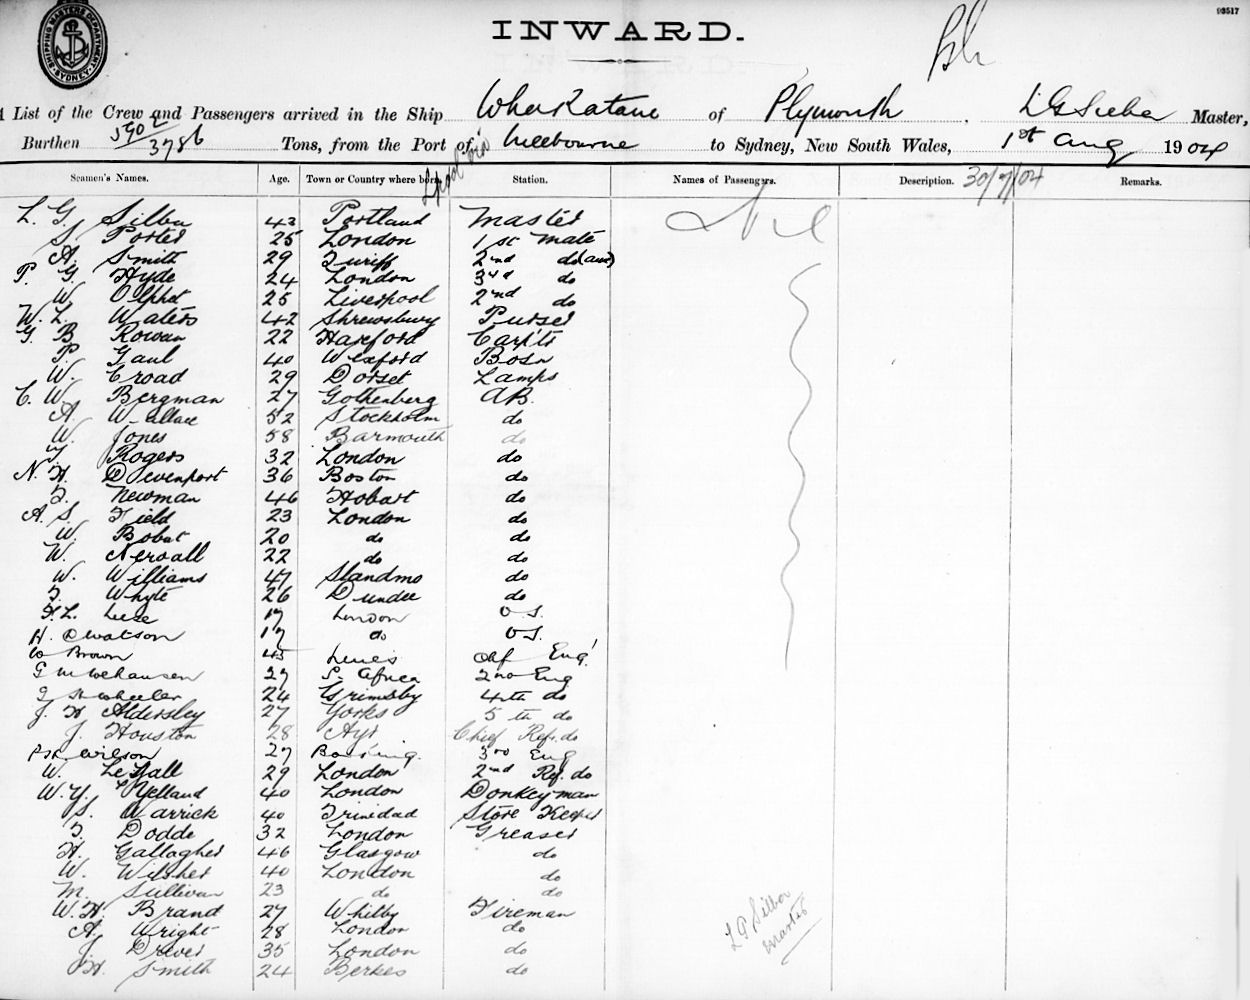 93517
SHIPPING MASTERS DEPARTMENT SYDNEY
INWARD.
A List of the Crew and Passengers arrived in the Ship Whakatane of Plymouth, Master,
Burthen 5902/3786 Tons, from the Port of L'pool via Melbourne to Sydney, New South Wales, 1st Aug 1904
Seamen's Names. Age. Town or Country where born Station. Names of Passengers. Description. 30/7/04 Remarks.
L. G. Silba 43 Portland Master Nil
S. Porter 25 London 1st Mate
A. Smith 29 Turiff 2nd do
P. G. Hyde 24 London 3rd do
W. 25 Liverpool 2nd do
W. L. Waters 42 Shrewsbury Purser
G. B Rowan 22 Carp'tr
P. Gaul 40 Wexford Bosn
W. Croad 29 Dorset Lamps
C. W. Bergman 27 Gothenberg AB.
A. Wallace 52 Stockholm do
W. Jones 58 Barmouth do
Rogers 32 London do
N. H. Devenport 36 Boston do
T. Newman 46 Hobart do
A. S. Field 23 London do
W. 20 do do
W. 22 do do
W. Williams 47 do
T. Whyte 26 Dundee do
H. L. 17 London O.S.
H. C Watson 17 do O.S.
Brown 45 Chf Eng'
G 27 S. Africa 2nd Eng
J H Wheeler 24 Grimsby 4th do
J. H Aldersley 27 Yorks 5th do
J. Houston 28 Ayr Chief Ref. do
Wilson 27 3rd Eng
W. 29 London 2nd Ref. do
W. Y. Yelland 40 London Donkeyman
S. Warrick 40 Trinidad Store Keeper
T. Dodde 32 London Greaser
H. Gallagher 46 Glasgow do
W. Wilsher 40 London do
M. Sullivan 23 do do
W. H. Brand 27 Whitby Fireman
A. Wright 28 London do
J. Drever 35 London do
H. Smith 24 Berkes do
L G Silba
Master